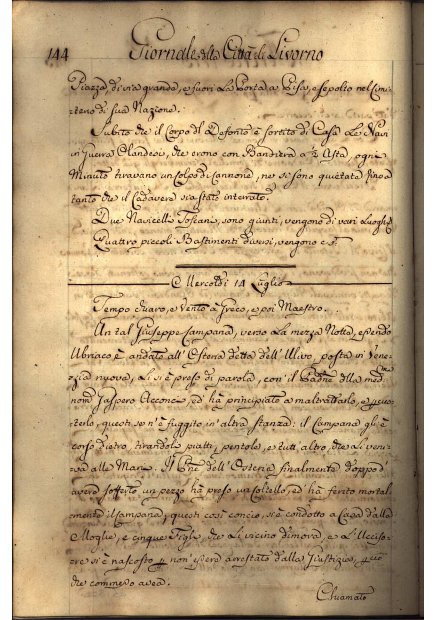 144 Giornale della Città di Livorno
Piazza, di via grande, e fuori La Porta a Pisa, e sepolto nel Cimi-
terio di sua Nazione.
Subito che il Corpo del Defonto è sortito di Casa Le Navi
in Guerra Olandesi, che erono con Bandiera a ½ Asta, ogni
Minuto tiravano un Colpo di Cannone, ne si sono quietate fino a
tanto che il Cadavere sia stato interrato.
Due Navicelli Toscani, sono giunti, vengono di vari Luoghi, e
Quattro piccoli Bastimenti diversi, vengono
Mercoldi 14 Luglio
Tempo chiaro, e Vento a Greco, e poi Maestro.
Un tal Giuseppe Campana, verso La mezza Notte, essendo
Ubriaco è andato all' Osteria detta dell' Ulivo, posta in Vene-
zia nuova, Li si è preso di parola, con il Padne della med.ma
nom.o Gaspero Accone, ed hà principiato a maltrattarlo, e
terlo, questi se n'è fuggito in altra stanza: il Campana gli è
corso dietro, tirandole piatti, pentole, e tutt'altro, che Li veni-
va alle Mani. Il Pne dell' Osteria finalmente doppo d'
avere sofferto un pezzo hà preso un coltello, ed hà ferito mortal-
mente il Campana, questi così concio, si è condotto a Casa dalla
Moglie, e cinque Figli, che Li vicino dimora, e L'Ucciso-
re si è nascosto p non essere arrestato dalla Giustizia, p ciò
che commesso avea.
Chiamato